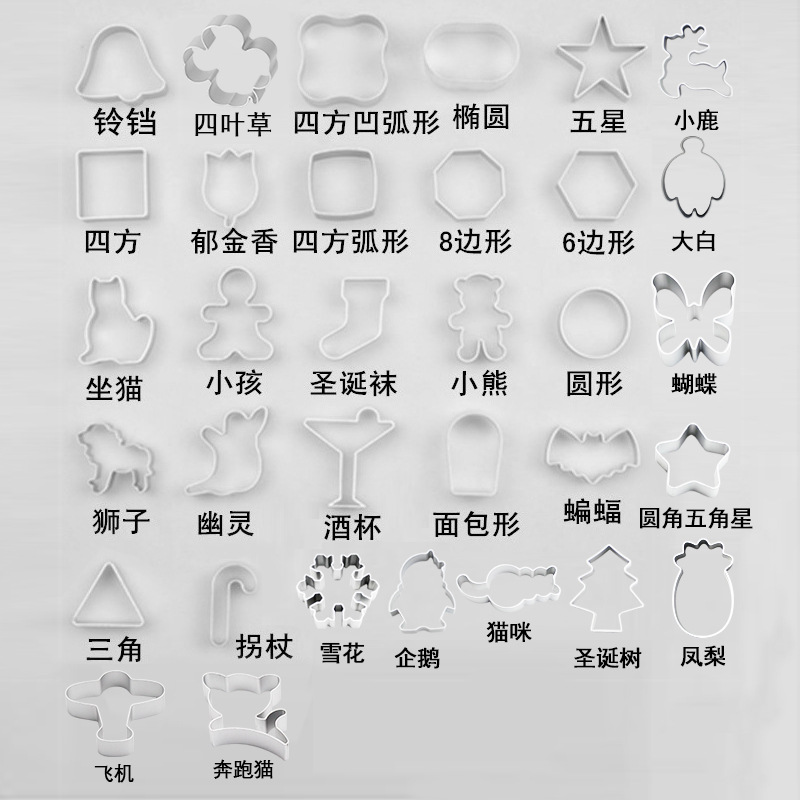 铃铛 四叶草 四方凹弧形 椭圆 五星 小鹿
四方 郁金香 四方弧形 8边形 6边形 大白
坐猫 小孩 圣诞袜 小熊 圆形 蝴蝶
狮子 幽灵 酒杯 面包形 蝙蝠 圆角五角星
三角 拐杖 雪花 企鹅 猫咪 圣诞树 凤梨
飞机 奔跑猫